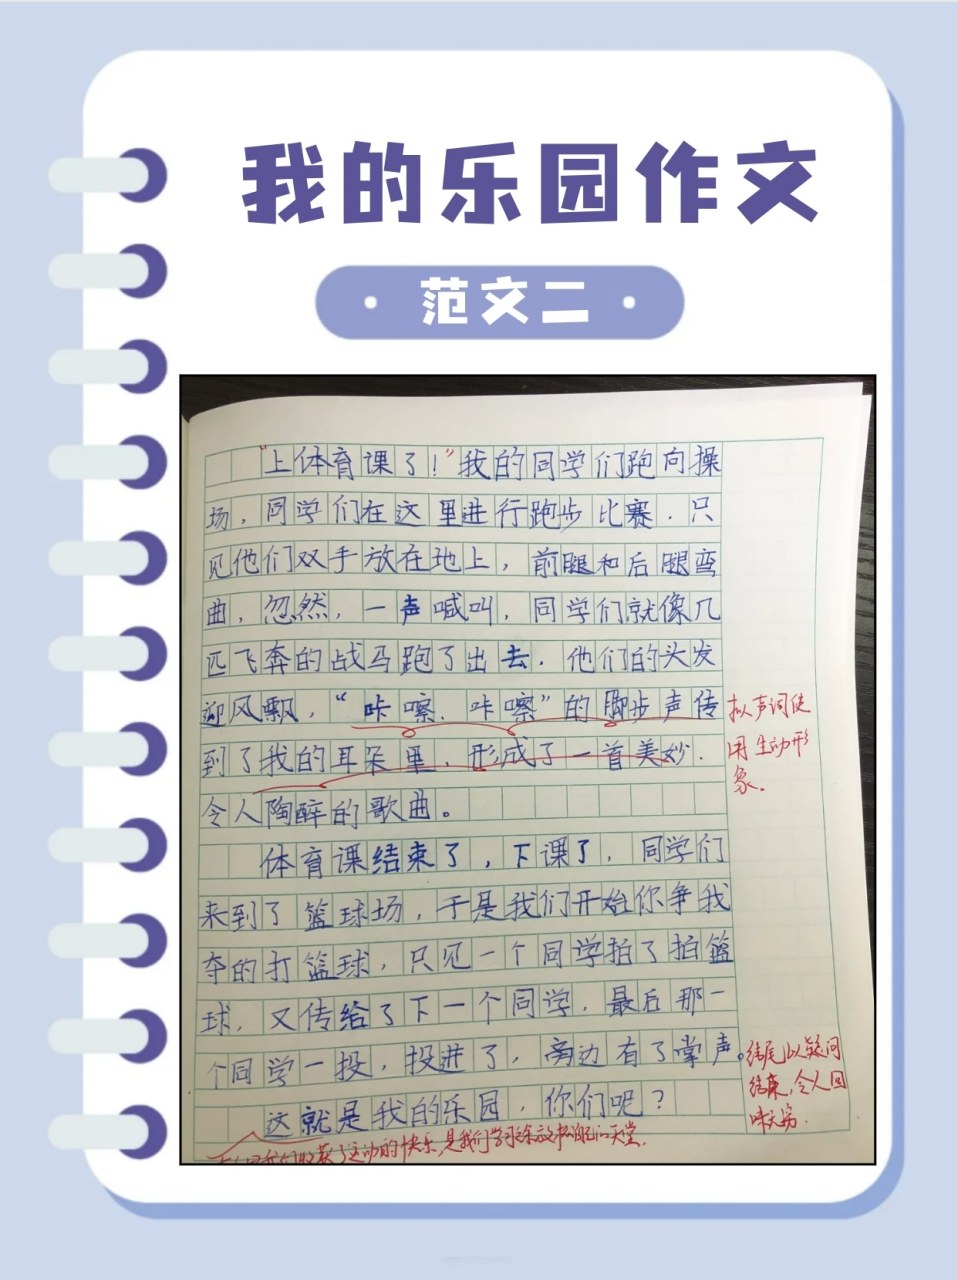 我的乐园作文
范文二
“上体育课了！”我的同学们跑向操
场，同学们在这里进行跑步比赛．只
见他们双手放在地上，前腿和后腿弯
曲，忽然，一声喊叫，同学们就像几
匹飞奔的战马跑了出去．他们的头发
迎风飘，“咔嚓．咔嚓”的脚步声传
到了我的耳朵里，形成了一首美妙．
令人陶醉的歌曲。
拟声词使
用生动形
象．
体育课结束了，下课了，同学们
来到了篮球场，于是我们开始你争我
夺的打篮球，只见一个同学拍了拍篮
球，又传给了下一个同学，最后那一
个同学一投，投进了，旁边有了掌声。
这就是我的乐园，你们呢？
结尾以疑问
结束，令人回
味无穷．
我们收获了运动的快乐，是我们学习